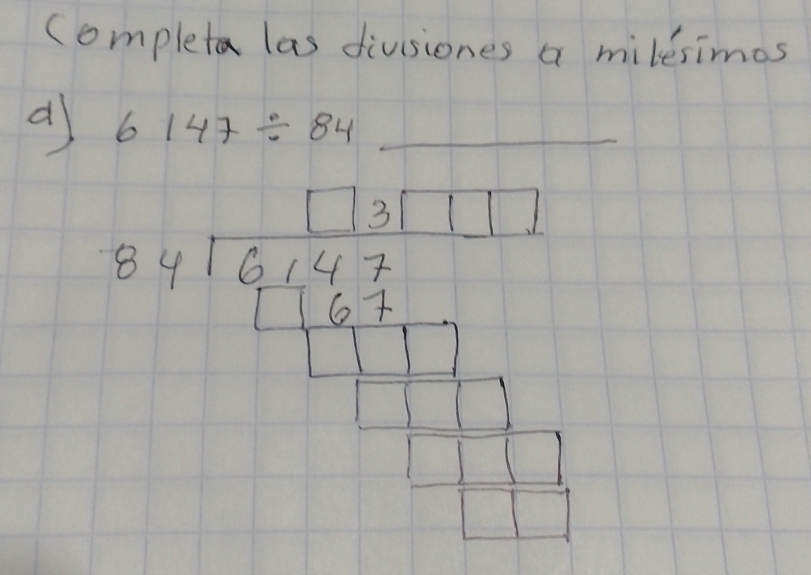 Completa las divisiones a milésimos
a) 6 147 ÷ 84
3
84 6147
67